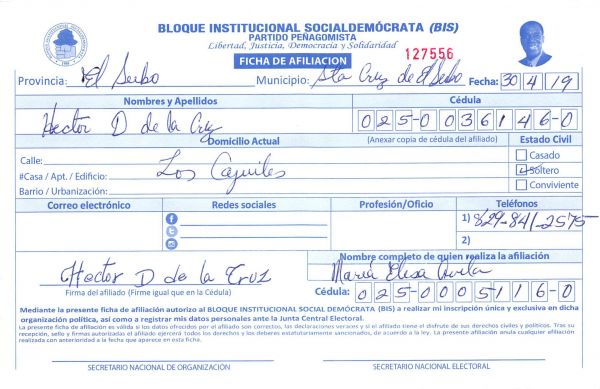 BLOQUE INSTITUCIONAL SOCIALDEMÓCRATA (BIS)
PARTIDO PEÑAGOMISTA
Libertad, Justicia, Democracia y Solidaridad
FICHA DE AFILIACION
127556
Provincia: El Seibo Municipio: Sta Cruz de El Seibo Fecha: 30 4 19
Nombres y Apellidos Cédula
Hector D de la Cruz 025-0036146-0
Domicilio Actual (Anexar copia de cédula del afiliado) Estado Civil
Calle: Casado
#Casa / Apt. / Edificio: Los Cajuiles Soltero
Barrio / Urbanización: Conviviente
Correo electrónico Redes sociales Profesión/Oficio Teléfonos
1) 829-841-2575
2)
Nombre completo de quien realiza la afiliación
Hector D de la Cruz Maria Elisa Avila
Firma del afiliado (Firme igual que en la Cédula) Cédula: 025-0005116-0
Mediante la presente ficha de afiliación autorizo al BLOQUE INSTITUCIONAL SOCIAL DEMÓCRATA (BIS) a realizar mi inscripción única y exclusiva en dicha
organización política, así como a registrar mis datos personales ante la Junta Central Electoral.
La presente ficha de afiliación es válida si los datos ofrecidos por el afiliado son correctos, las declaraciones veraces y si el afiliado tiene el disfrute de sus derechos civiles y políticos. Tras su
recepción, sello y firmas autorizadas el afiliado ejercerá todos los derechos y los deberes estatutariamente sancionados, de acuerdo a la ley. La presente afiliación anula cualquier afiliación
realizada con anterioridad a la fecha que aparece en esta ficha.
SECRETARIO NACIONAL DE ORGANIZACIÓN SECRETARIO NACIONAL ELECTORAL